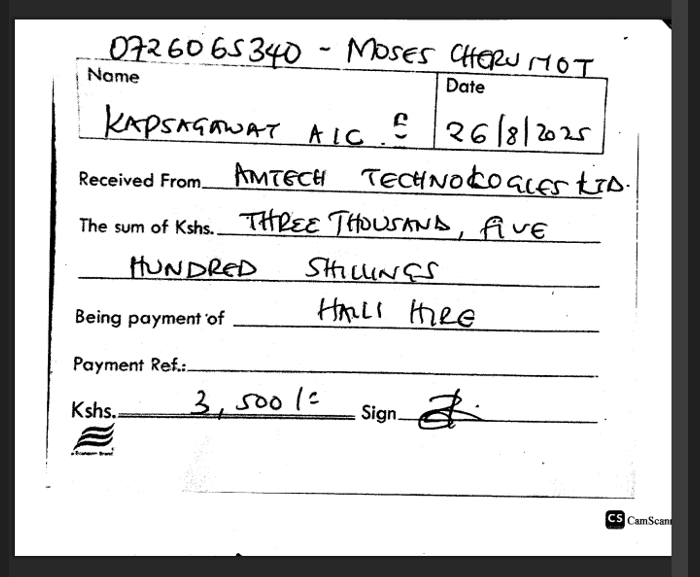 0726065340 - MOSES CHERUIYOT
Name
Date
KAPSAGAWAT AIC.
26/8/2025
Received From AMTECH TECHNOLOGIES LTD.
The sum of Kshs. THREE THOUSAND, FIVE
HUNDRED SHILLINGS
Being payment of HALL HIRE
Payment Ref.:
Kshs. 3,500/=
Sign
CS CamScan